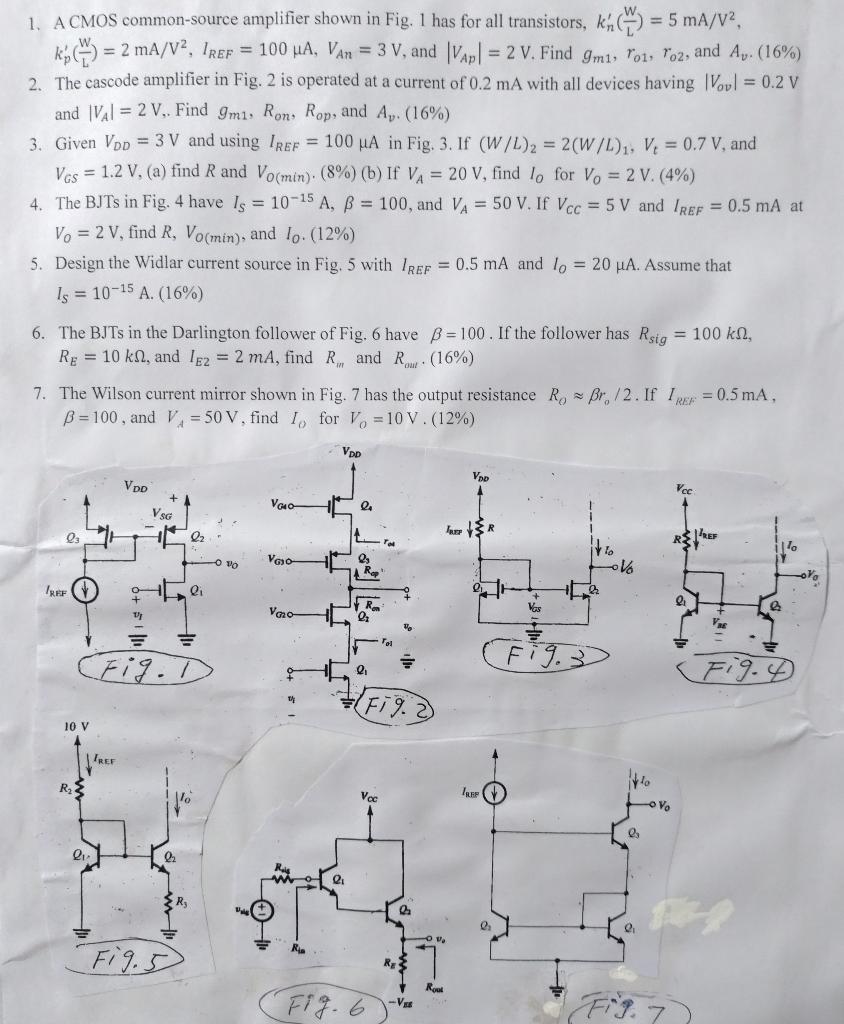 1. A CMOS common-source amplifier shown in Fig. 1 has for all transistors, k'n(W/L) = 5 mA/V²,
k'p(W/L) = 2 mA/V², IREF = 100 μA, VAn = 3 V, and |VAp| = 2 V. Find gm1, ro1, ro2, and Av. (16%)
2. The cascode amplifier in Fig. 2 is operated at a current of 0.2 mA with all devices having |Vov| = 0.2 V
and |VA| = 2 V,. Find gm1, Ron, Rop, and Av. (16%)
3. Given VDD = 3 V and using IREF = 100 μA in Fig. 3. If (W/L)2 = 2(W/L)1, Vt = 0.7 V, and
VGS = 1.2 V, (a) find R and VO(min). (8%) (b) If VA = 20 V, find IO for VO = 2 V. (4%)
4. The BJTs in Fig. 4 have IS = 10⁻¹⁵ A, β = 100, and VA = 50 V. If VCC = 5 V and IREF = 0.5 mA at
VO = 2 V, find R, VO(min), and IO. (12%)
5. Design the Widlar current source in Fig. 5 with IREF = 0.5 mA and IO = 20 μA. Assume that
IS = 10⁻¹⁵ A. (16%)
6. The BJTs in the Darlington follower of Fig. 6 have β = 100. If the follower has Rsig = 100 kΩ,
RE = 10 kΩ, and IE2 = 2 mA, find Rin and Rout. (16%)
7. The Wilson current mirror shown in Fig. 7 has the output resistance RO ≈ βro/2. If IREF = 0.5 mA,
β = 100, and VA = 50 V, find IO for VO = 10 V. (12%)
VDD
VSG
+
−
Q3
Q2
vO
IREF
Q1
+
vI
−
Fig. 1
VDD
VG4
Q4
ro4
VG3
Q3
Rop
Ron
VG2
Q2
+
vo
ro1
Q1
+
vi
−
Fig. 2
VDD
IREF
R
IO
VO
Q1
Q2
+
VGS
−
Fig. 3
VCC
R
IREF
IO
VO
Q1
Q2
+
VBE
−
Fig. 4
10 V
IREF
R2
IO
Q1
Q2
R3
Fig. 5
VCC
Rsig
Q1
vsig
+
−
Q2
Rin
vo
RE
Rout
−VEE
Fig. 6
IREF
IO
VO
Q3
Q2
Q1
Fig. 7